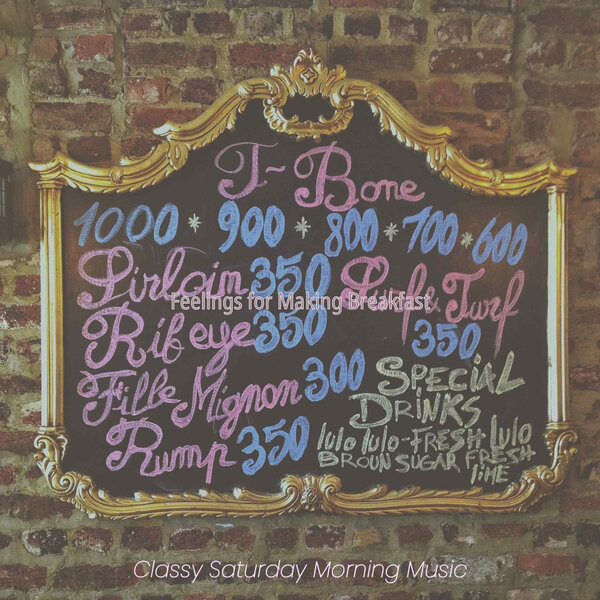 T-Bone
1000 * 900 * 800 * 700 * 600
Sirloin 350
Surf & Turf
350
Feelings for Making Breakfast
Rib eye 350
Fille Mignon 300
Rump 350
SPECIAL
DRINKS
lulo lulo-FRESH lulo
BROUN SUGAR FRESH
liME
Classy Saturday Morning Music